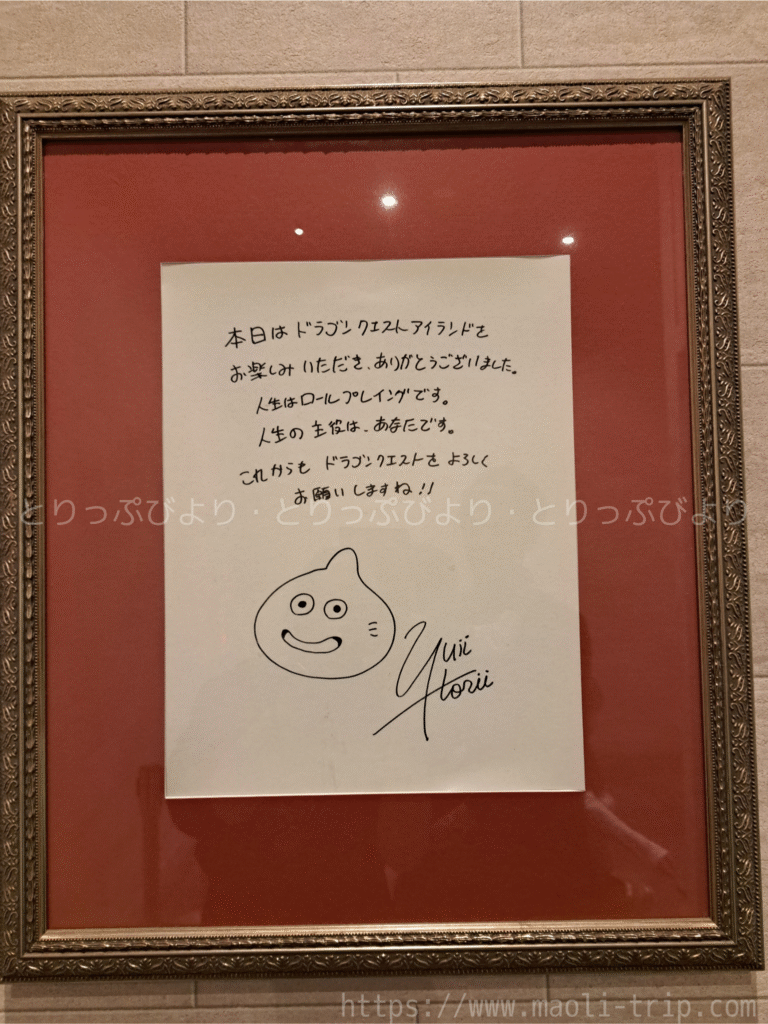 本日はドラゴンクエストアイランドを
お楽しみいただき、ありがとうございました。
人生はロールプレイングです。
人生の主役は、あなたです。
これからもドラゴンクエストをよろしく
お願いしますね!!
とりっぷびより・とりっぷびより・とりっぷびより
Yuji
Horii
https://www.maoli-trip.com